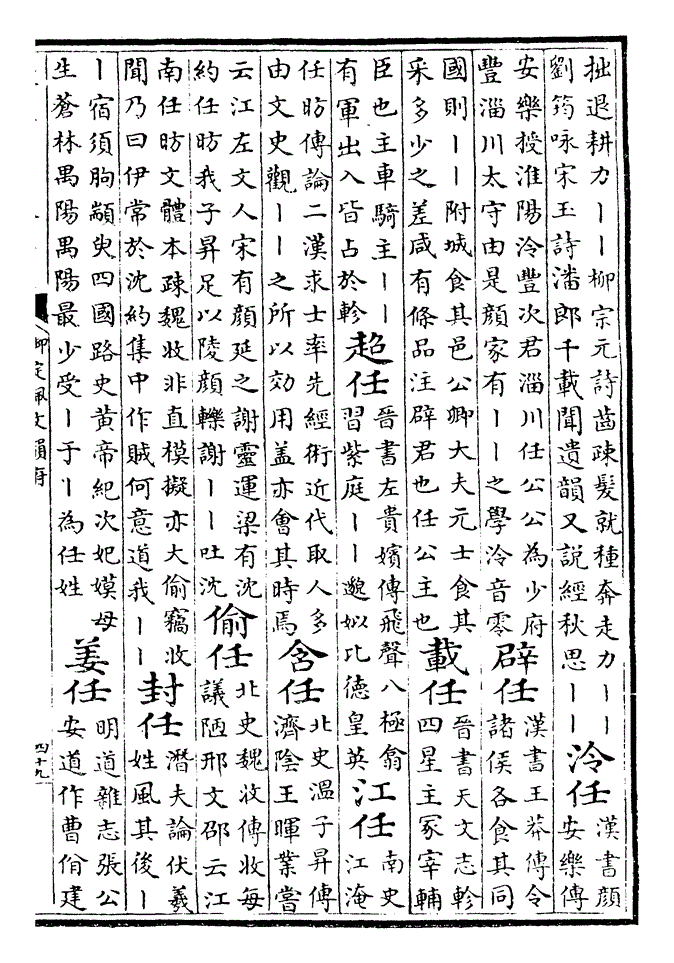 拙退耕力丨丨柳宗元詩齒疎髮就種奔走力丨丨
劉筠咏宋玉詩潘郎千載聞遺韻又說經秋思丨丨
泠任
漢書顔
安樂傳
安樂授淮陽泠豐次君淄川任公公為少府
豐淄川太守由是顔家有丨丨之學泠音零
辟任
漢書王莽傳令
諸侯各食其同
國則丨丨附城食其邑公卿大夫元士食其
采多少之差咸有條品注辟君也任公主也
載任
晉書天文志軫
四星主冢宰輔
臣也主車騎主丨丨
有軍出入皆占於軫
超任
晉書左貴嬪傳飛聲八極翕
習紫庭丨丨邈姒比德皇英
江任
南史
江淹
任昉傳論二漢求士率先經術近代取人多
由文史觀丨丨之所以効用盖亦會其時焉
含任
北史溫子昇傳
濟陰王暉業嘗
云江左文人宋有顔延之謝靈運梁有沈
約任昉我子昇足以陵顔轢謝丨丨吐沈
偷任
北史魏收傳收每
議陋邢文邵云江
南任昉文體本疎魏收非直模擬亦大偷竊收
聞乃曰伊常於沈約集中作賊何意道我丨丨
封任
潛夫論伏羲
姓風其後丨
丨宿須朐顓臾四國路史黄帝紀次妃嫫母
生蒼林禺陽禺陽最少受丨于丨為任姓
姜任
明道雜志張公
安道作曹佾建
御定佩文韻府
四十九